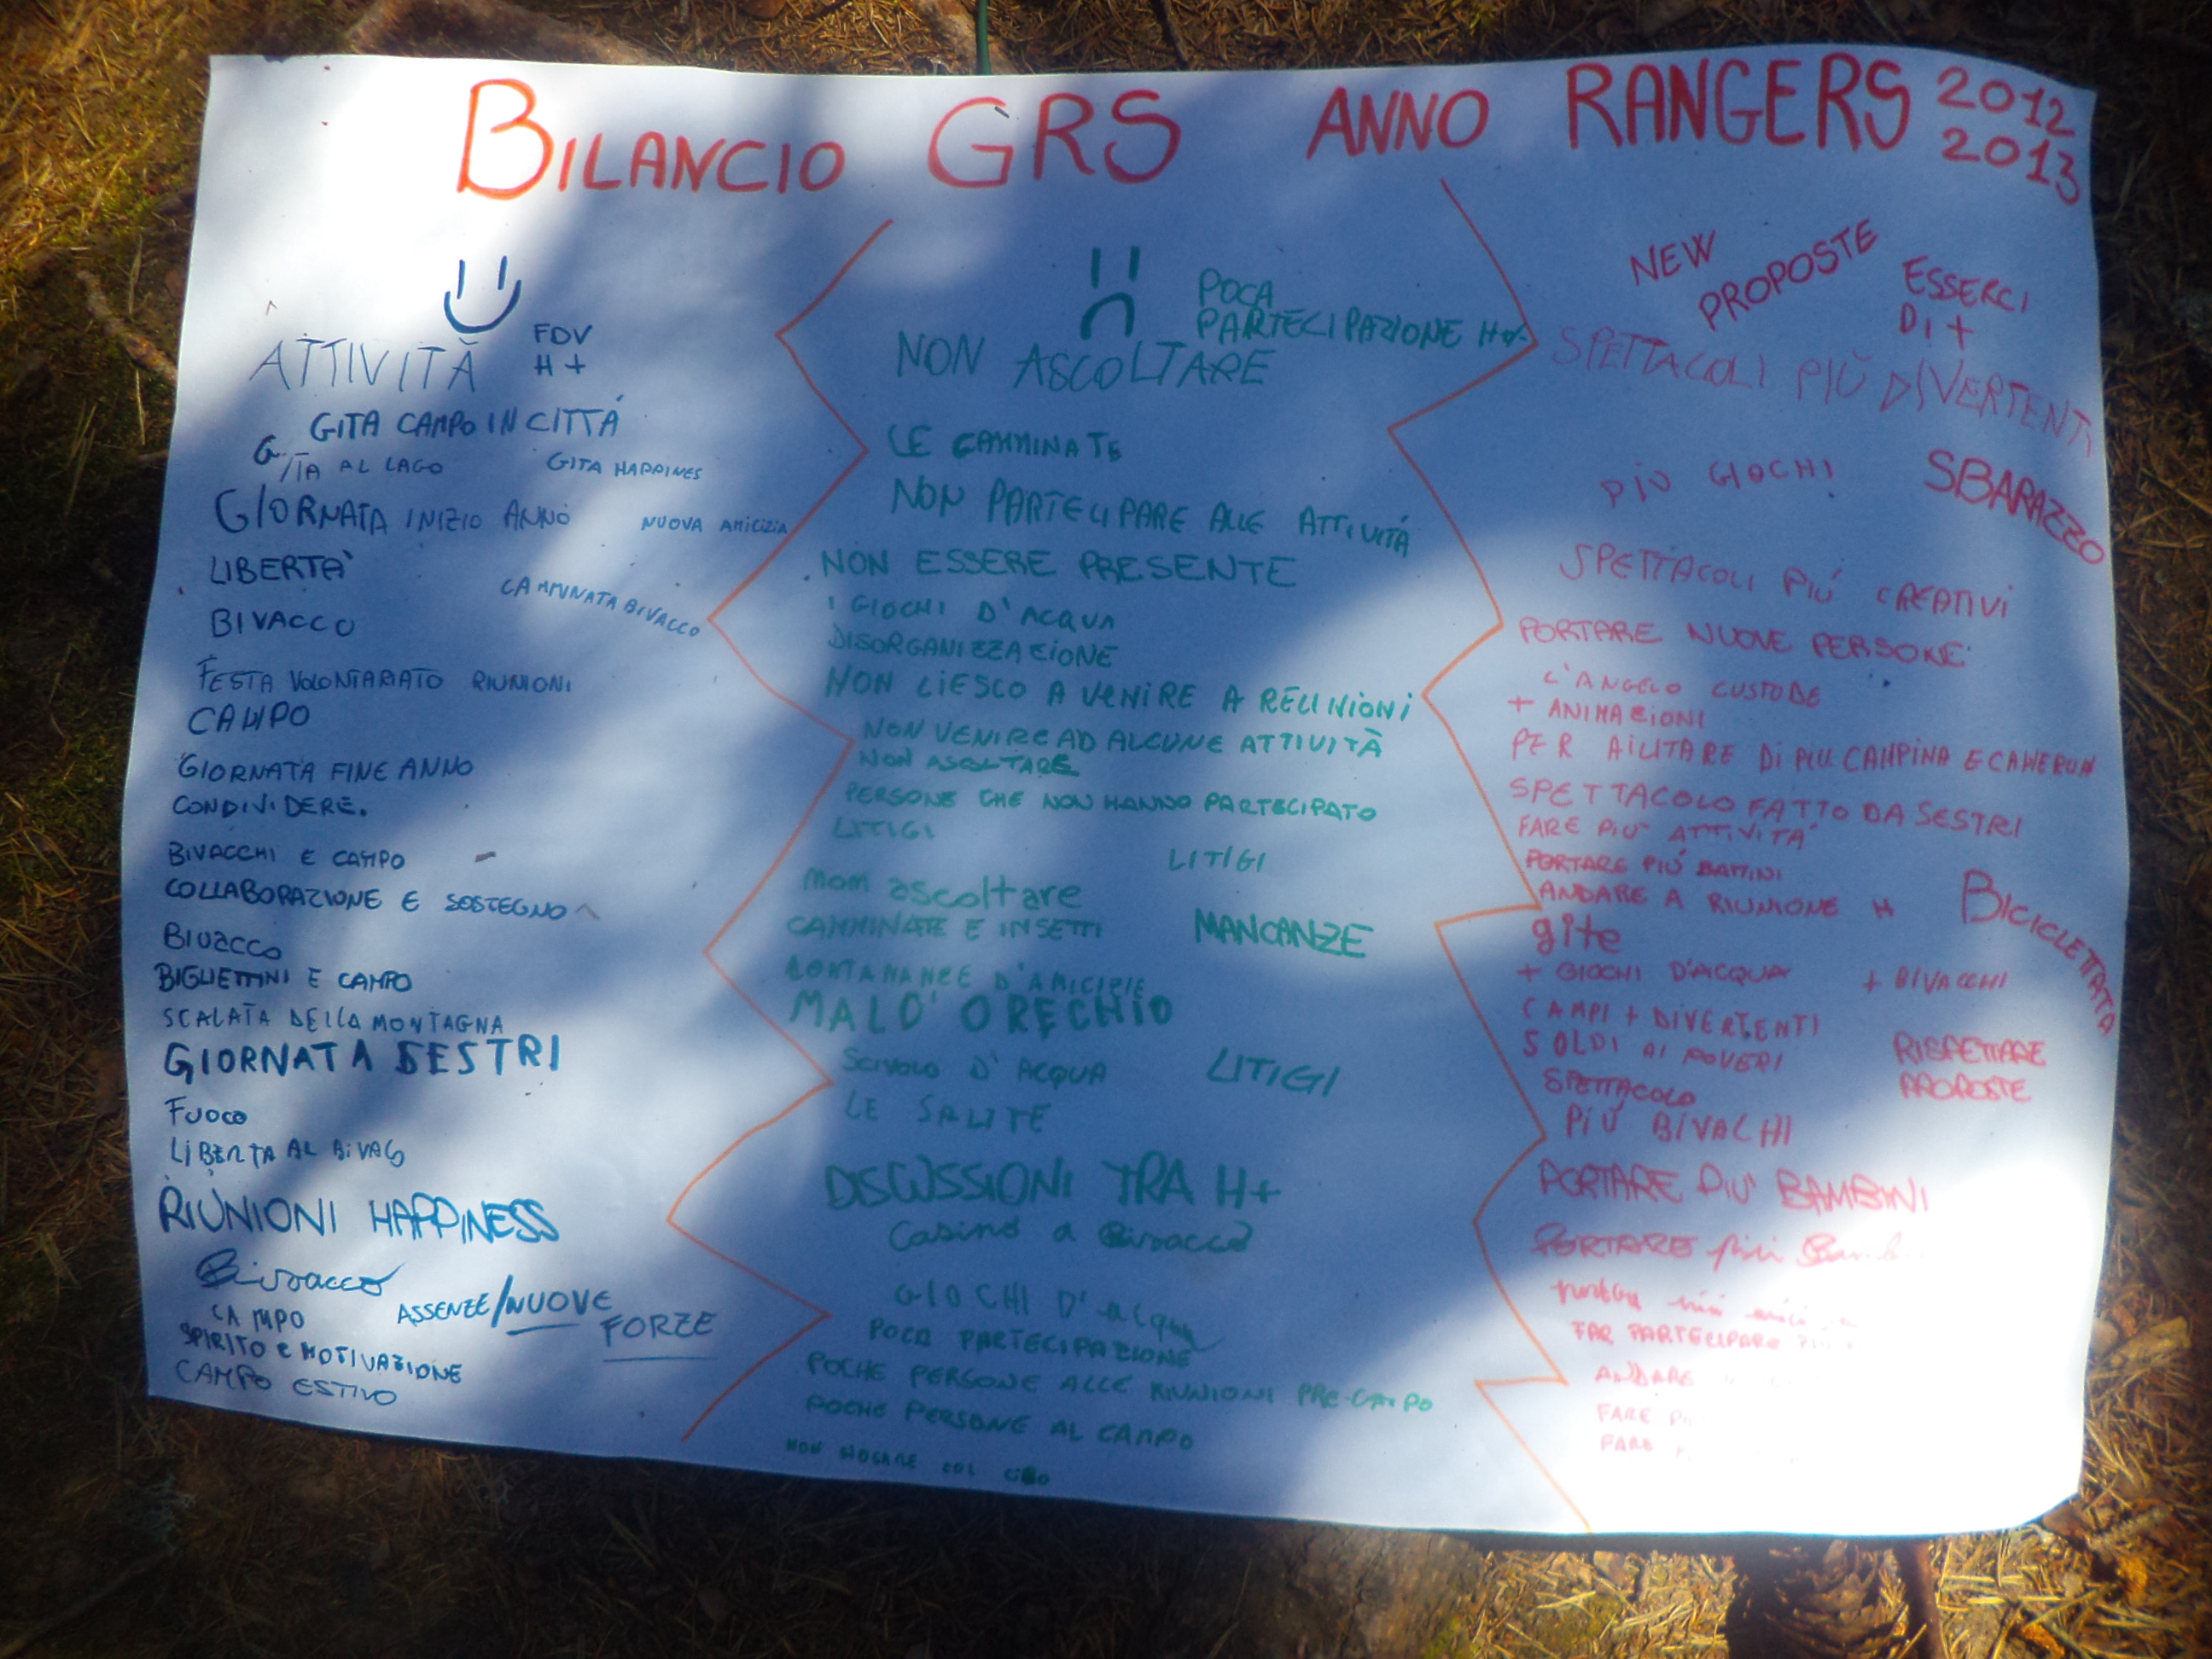 BILANCIO GRS ANNO RANGERS 2012
2013
FDV
H+
ATTIVITÀ
GITA CAMPO IN CITTÁ
GITA AL LAGO
GITA HAPPINES
GIORNATA INIZIO ANNO
NUOVA AMICIZIA
LIBERTA'
CAMMINATA BIVACCO
BIVACCO
FESTA VOLONTARIATO RIUNIONI
CAMPO
GIORNATA FINE ANNO
CONDIVIDERE.
BIVACCHI E CAMPO
COLLABORAZIONE E SOSTEGNO
BIVACCO
BIGLIETTINI E CAMPO
SCALATA DELLA MONTAGNA
GIORNATA SESTRI
FUOCO
LIBERTA AL
RIUNIONI HAPPINESS
Bivacco
CAMPO
ASSENZE/NUOVE
FORZE
SPIRITO E MOTIVAZIONE
CAMPO ESTIVO
POCA
PARTECIPAZIONE
NON ASCOLTARE
LE CAMMINATE
NON PARTECIPARE ALLE ATTIVITÁ
NON ESSERE PRESENTE
I GIOCHI D'ACQUA
DISORGANIZZAZIONE
NON A VENIRE A REUNIONI
NON VENIRE AD ALCUNE ATTIVITÀ
NON ASCOLTARE
PERSONE CHE NON HANNO PARTECIPATO
LITIGI
LITIGI
non ascoltare
CAMMINATE E INSETTI
MANCANZE
D'AMICIZIE
MALO' ORECHIO
SCIVOLO D'ACQUA
LITIGI
LE SALITE
DISCUSSIONI TRA H+
Casino a Bivacco
GIOCHI D'acqua
POCA PARTECIPAZIONE
POCHE PERSONE ALLE RIUNIONI PRE-CAMPO
POCHE PERSONE AL CAMPO
NON GIOCARE COL CIBO
NEW
PROPOSTE
ESSERCI
DI +
SPETTACOLI PIÙ DIVERTENTI
PIÙ GIOCHI
SBARAZZO
SPETTACOLI PIÚ CREATIVI
PORTARE NUOVE PERSONE
L'ANGELO CUSTODE
+ ANIMAZIONI
PER AIUTARE DI PIU CAMPINA E CAMERUN
SPETTACOLO FATTO DA SESTRI
FARE PIU' ATTIVITA'
PORTARE PIÚ
ANDARE A RIUNIONE H
BICICLETTATA
gite
+ GIOCHI D'ACQUA
+ BIVACCHI
CAMPI + DIVERTENTI
SOLDI AI POVERI
RISPETTARE
PROPOSTE
SPETTACOLO
PIÚ BIVACHI
PORTARE PIU' BAMBINI
PORTARE più
FAR PARTECIPARE
ANDARE
FARE
FARE